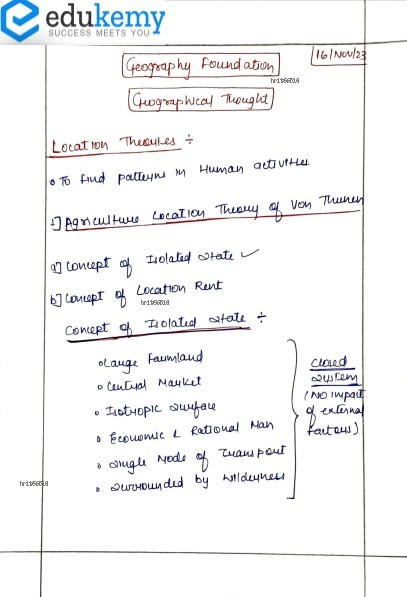 edukemy
SUCCESS MEETS YOU
16/Nov/23
Geography Foundation
hr1956516
Geographical Thought
Location Theories ÷
• To find patterns in Human activities.
1] Agriculture Location Theory of Von Thunen
a] Concept of Isolated State ✓
b] Concept of Location Rent
hr1956516
Concept of Isolated State ÷
• Large Farmland
• Central Market
• Isotropic Surface
• Economic & Rational Man
• Single Mode of Transport
• Surrounded by Wilderness
Closed
System
(No impact
of external
factors)
hr1956516